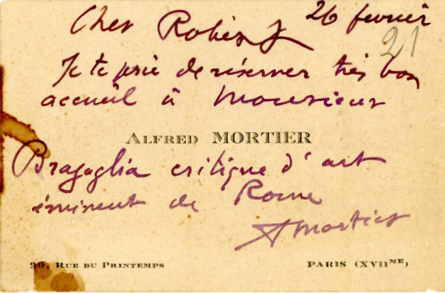 26 fevrier
21
Cher Robert
Je te prie de réserver très bon
accueil à Monsieur
ALFRED MORTIER
Bragaglia critique d'art
éminent de Rome
AMortier
RUE DU PRINTEMPS
PARIS (XVIIME)